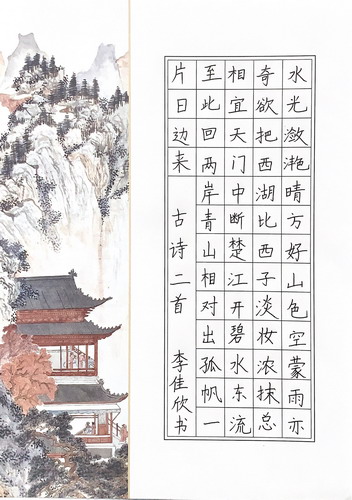 水光潋滟晴方好山色空蒙雨亦
奇欲把西湖比西子淡妆浓抹总
相宜天门中断楚江开碧水东流
至此回两岸青山相对出孤帆一
片日边来 古诗二首 李佳欣书